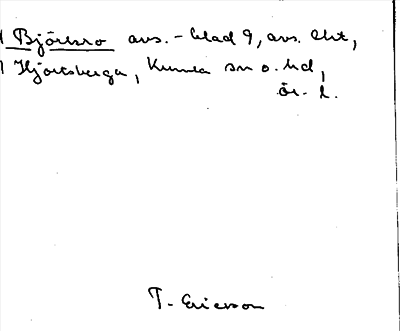 Björkbro avs. - blad 9, avs. Ekt,
Hjortsberga, Kumla sn o. hd,
ör. l.
T. Ericson